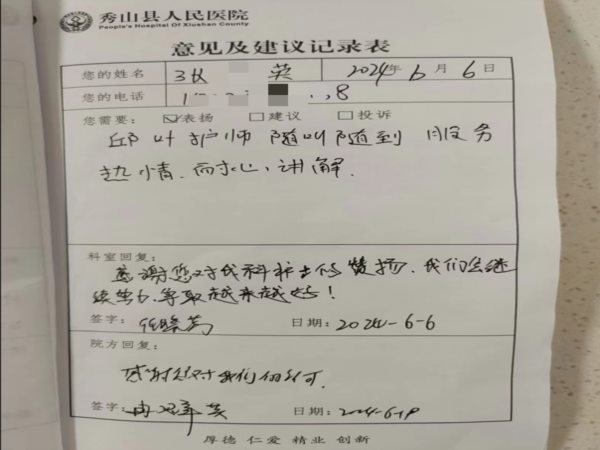 秀山县人民医院
People's Hospital Of Xiushan County
意见及建议记录表
您的姓名 英 2024年6月6日
您的电话 8
您需要: ☑表扬 □建议 □投诉
护师随叫随到 服务
热情.耐心,讲解.
科室回复:
感谢您对我科护士的赞扬.我们会继
续努力,争取越来越好!
签字: 日期: 2024-6-6
院方回复:
感谢您对我们的认可.
签字: 日期: 2024-6-19
厚德 仁爱 精业 创新